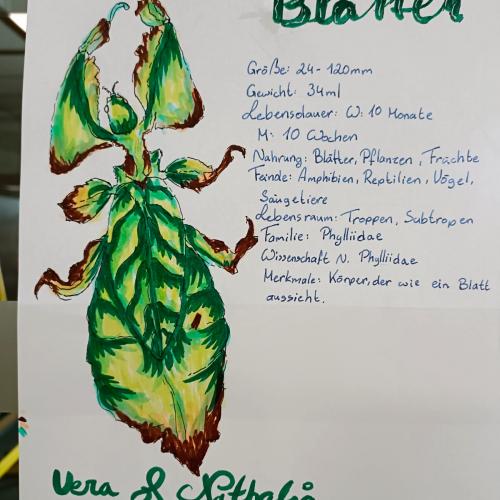 Blätter
Größe: 24-120mm
Gewicht: 34ml
Lebensdauer: W: 10 Monate
M: 10 Wochen
Nahrung: Blätter, Pflanzen, Früchte
Feinde: Amphibien, Reptilien, Vögel,
Säugetiere
Lebensraum: Troppen, Subtropen
Familie: Phylliidae
Wissenschaft N. Phylliidae
Merkmale: Körper, der wie ein Blatt
aussicht.
Vera &